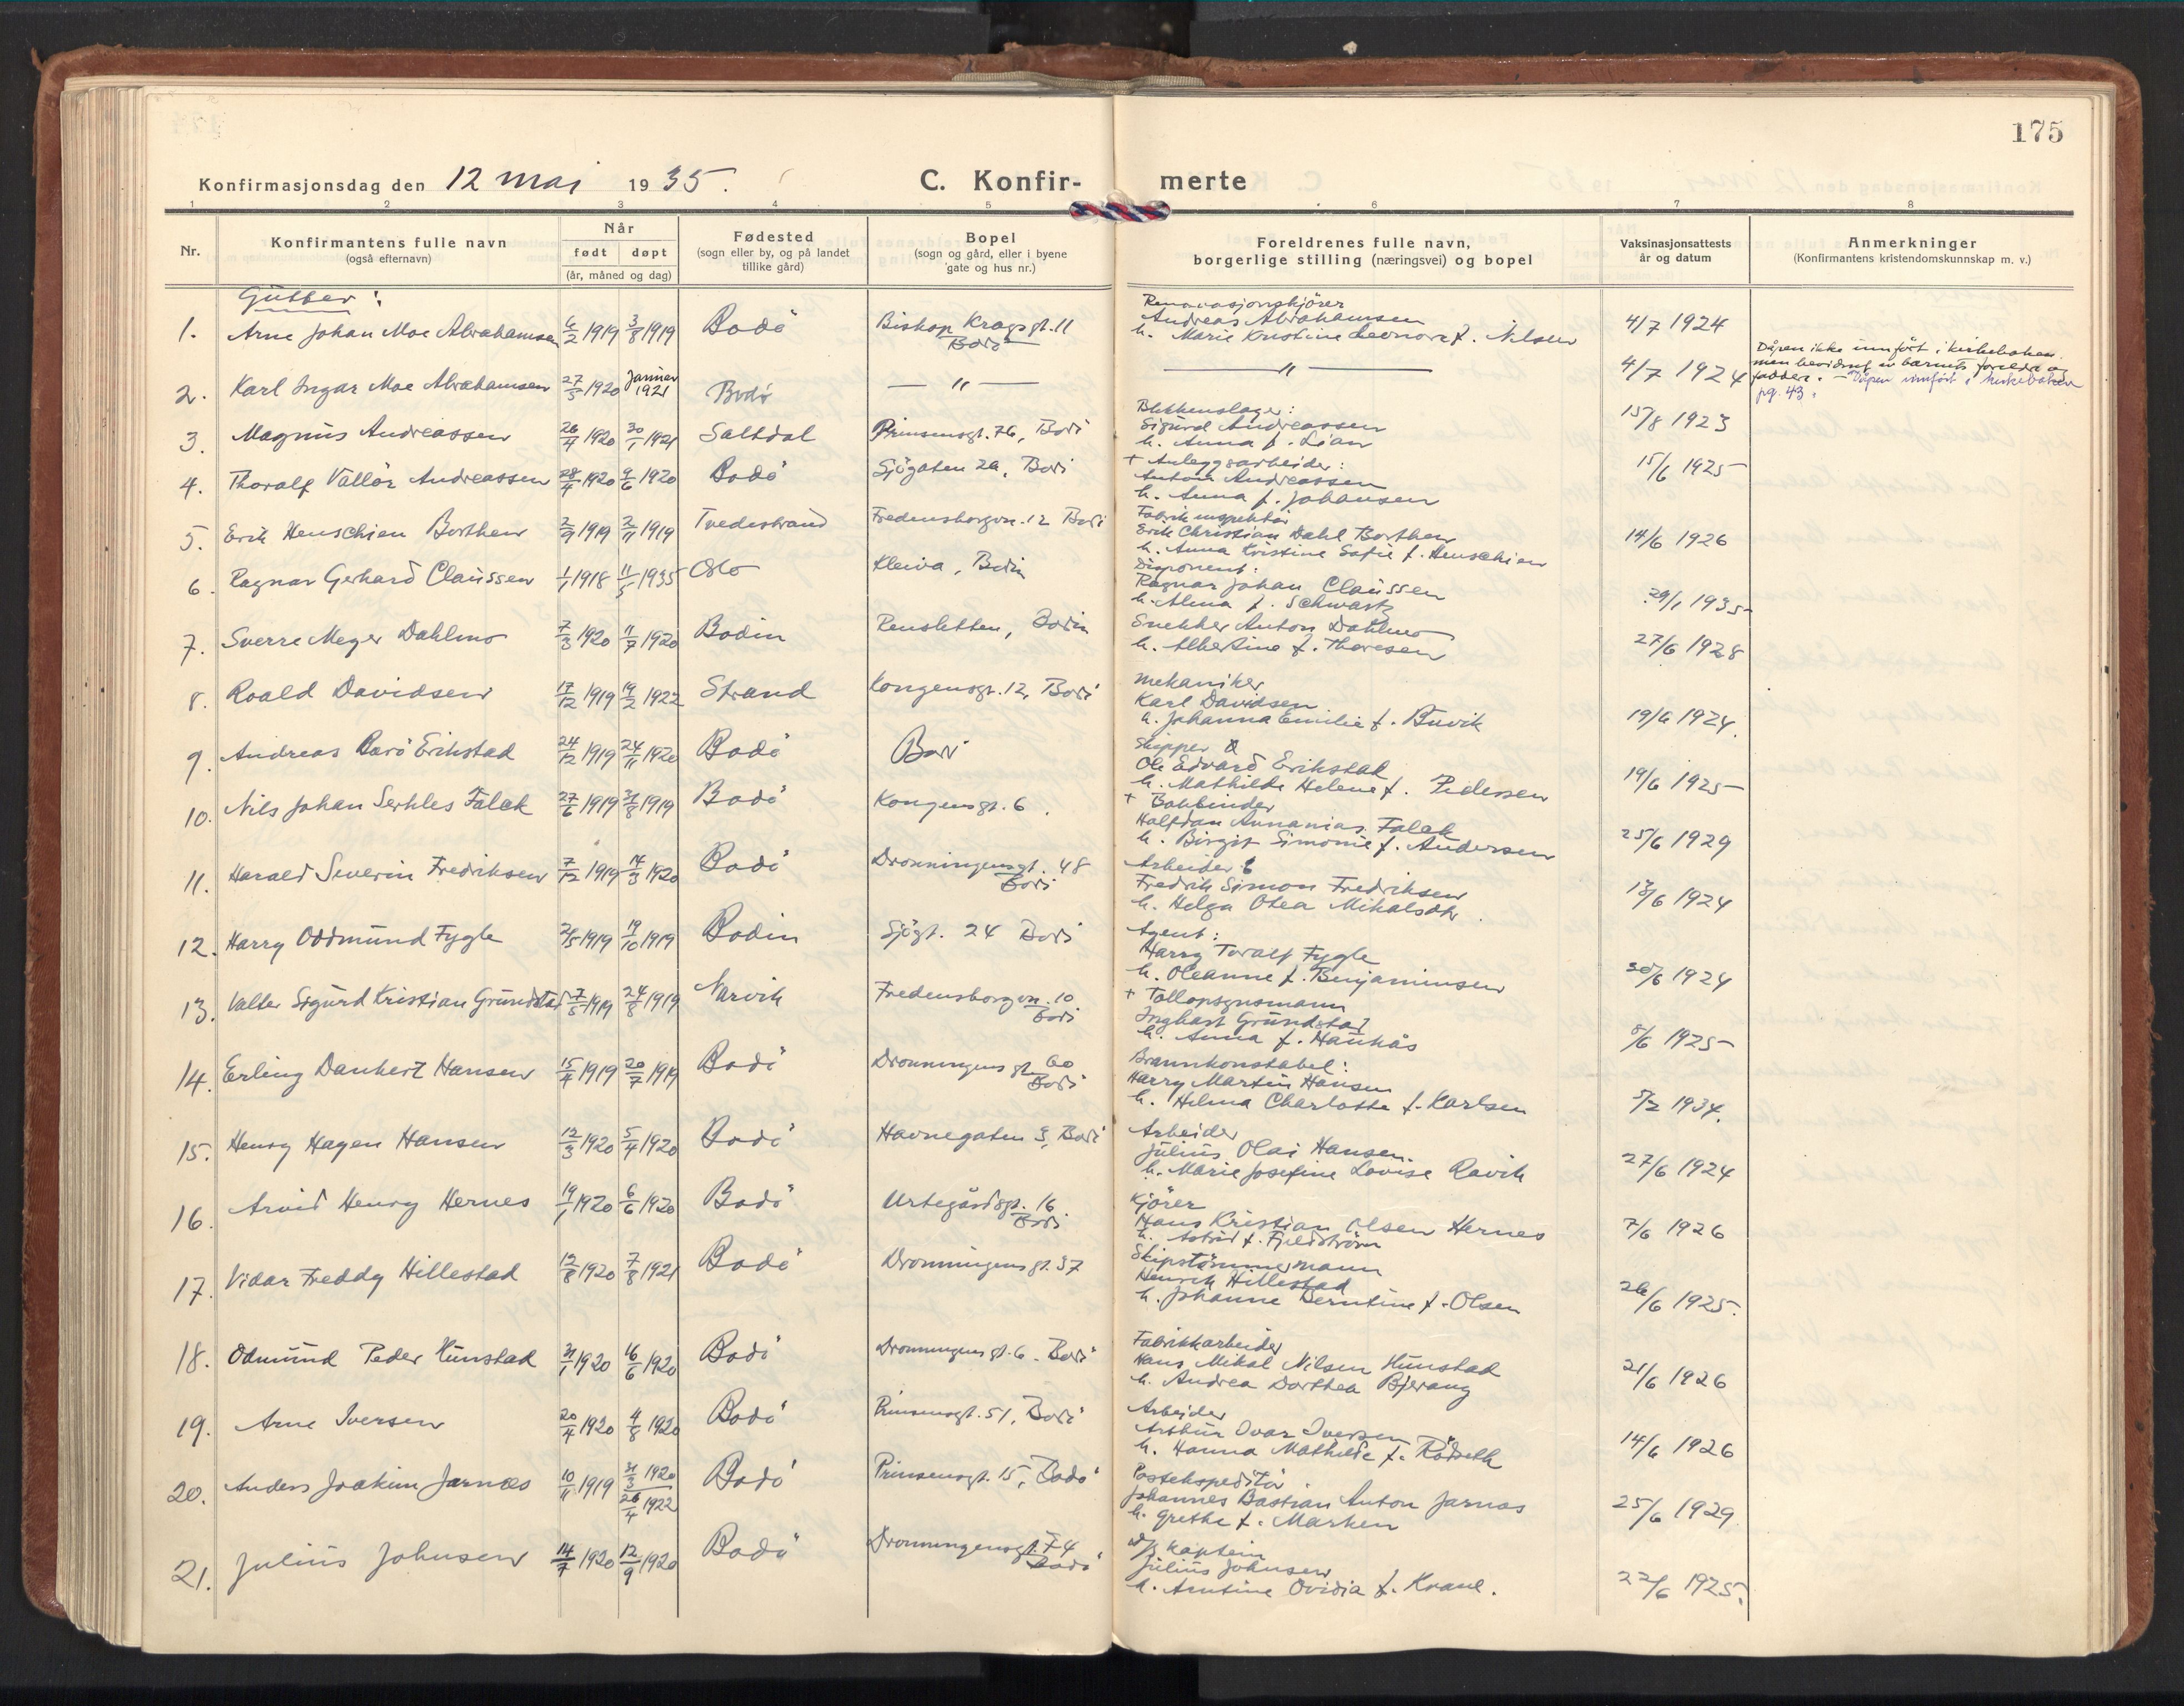 175
Konfirmasjonsdag den 12 mai 1935.
C. Konfir- merte
1 2 3 4 5 6 7 8
Nr.
Konfirmantens fulle navn
(også efternavn)
Når
født døpt
(år, måned og dag)
Fødested
(sogn eller by, og på landet
tillike gård)
Bopel
(sogn og gård, eller i byene
gate og hus nr.)
Foreldrenes fulle navn,
borgerlige stilling (næringsvei) og bopel
Vaksinasjonsattests
år og datum
Anmerkninger
(Konfirmantens kristendomskunnskap m. v.)
Gutter:
1. Arne Johan Moe Abrahamsen 6/2 1919 3/8 1919 Bodö Biskop Krogsgt. 11 Bodö
Renovasjonskjörer
Andreas Abrahamsen
h. Marie Kristine Leonore f. Nilsen 4/7 1924
2. Karl Ingar Moe Abrahamsen 27/5 1920 Januar 1921 Bodö — " —
— " — 4/7 1924
Dåpen ikke innfört i kirkeboken
men bevidnet av barnets foreldre og
faddere. – Dåpen innfört i kirkeboken
pg. 43.
3. Magnus Andreassen 26/9 1920 30/1 1921 Saltdal Prinsensgt. 76, Bodö
Blikkenslager:
Sigurd Andreassen
h. Anna f. Lian 15/8 1923
4. Thoralf Vallör Andreassen 28/4 1920 9/6 1920 Bodö Sjögaten 2a, Bodö
+ Anleggsarbeider:
Anton Andreassen
h. Anna f. Johansen 15/6 1925
5. Erik Henschien Borthen 2/9 1919 2/11 1919 Tvedestrand Fredensborgvn. 12 Bodö
Fabrikinspektör
Erik Christian Dahl Borthen
h. Anna Kristine Sofie f. Henschien 14/6 1926
6. Ragnar Gerhard Claussen 1/1 1918 11/5 1935 Oslo Kleiva, Bodin
Disponent:
Ragnar Johan Claussen
h. Alma f. Schwartz 29/1 1935
7. Sverre Meyer Dahlmo 7/3 1920 11/7 1920 Bodin Rensletten, Bodin
Snekker Anton Dahlmo
h. Albertine f. Thoresen 27/6 1928
8. Roald Davidsen 17/12 1919 19/2 1922 Strand Kongensgt. 12, Bodö
Mekaniker
Karl Davidsen
h. Johanna Emilie f. Buvik 19/6 1924.
9. Andreas Barö Erikstad 24/12 1919 24/11 1920 Bodö Bodö
Skipper
Ole Edvard Erikstad
h. Mathilde Helene f. Pedersen 19/6 1925
10. Nils Johan Serkles Falck 27/6 1919 31/8 1919 Bodö Kongensgt. 6.
+ Bokbinder
Halfdan Annanias Falck
h. Birgit Simonie f. Andersen 25/6 1929
11. Harald Severin Fredriksen 7/12 1919 14/3 1920 Bodö Dronningensgt. 48 Bodö
Arbeider
Fredrik Simon Fredriksen
h. Helga Otea Mikalsdtr. 13/6 1924
12. Harry Oddmund Fygle 2/5 1919 19/10 1919 Bodin Sjögt. 24 Bodö
Agent:
Harry Toralf Fygle
h. Oleanne f. Benjaminsen 30/6 1924
13. Valter Sigurd Kristian Grundstad 7/5 1919 24/8 1919 Narvik Fredensborgvn. 10. Bodö
+ Tollopsynsmann
Ingbart Grundstad
h. Anna f. Haukås 5/6 1925
14. Erling Dankert Hansen 15/4 1919 20/7 1919 Bodö Dronningensgt. 60 Bodö
Brannkonstabel:
Harry Martin Hansen
h. Helma Charlotte f. Karlsen 5/2 1934.
15. Henry Hagen Hansen 12/3 1920 5/4 1920 Bodö Havnegaten 3, Bodö
Arbeider
Julius Olai Hansen.
h. Marie Josefine Lovise Ravik 27/6 1924
16. Arvid Henry Hernes 19/1 1920 6/6 1920 Bodö Urtegårdsgt. 16. Bodö
Kjörer
Hans Kristian Olsen Hernes
h. Astrid f. Fjeldström 7/6 1926
17. Vidar Freddy Hillestad 12/8 1920 7/8 1921 Bodö Dronningensgt. 37
Skipstömmermann
Henrik Hillestad
h. Johanne Berntine f. Olsen 26/6 1925.
18. Odmund Peder Hunstad 31/1 1920 16/6 1920 Bodö Dronningensgt. 6. Bodö
Fabrikkarbeider
Hans Mikal Nilsen Hunstad
h. Andrea Dorthea Bjerang 21/6 1926
19. Arne Iversen 20/4 1920 4/8 1920 Bodö Prinsensgt. 51, Bodö
Arbeider
Arthur Ovar Iversen
h. Hanna Mathilde f. Rödseth 14/6 1926
20. Anders Joakim Jarnæs 10/11 1919 31/3 1920 26/4 1922 Bodö Prinsensgt. 15, Bodö
Postekspeditör
Johannes Bastian Anton Jarnæs
h. Grethe f. Marken 25/6 1929
21. Julius Johnsen 14/7 1920 12/9 1920 Bodö Dronningensgt. 74 Bodö
d/s Kaptein
Julius Johnsen
h. Arntine Ovidia f. Kvane. 22/6 1925.